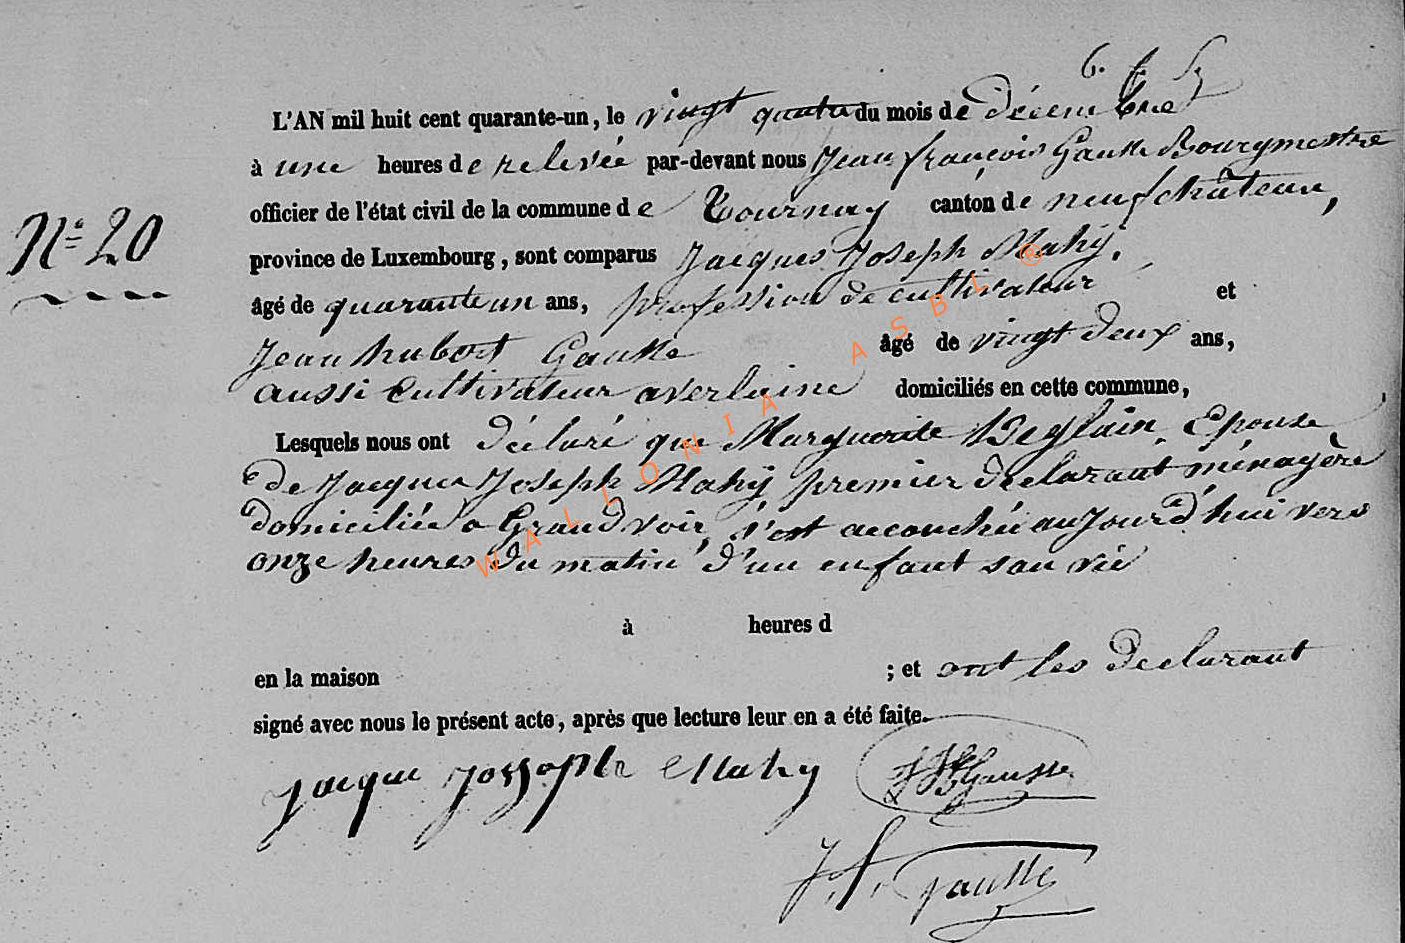 L'AN mil huit cent quarante-un, le vingt quatre du mois de décembre
à une heures de relevée par-devant nous Jean françois Gausse Bourgmestre
officier de l'état civil de la commune de Tournay canton de neufchâteau,
N° 20
province de Luxembourg, sont comparus Jacques Joseph Mahy.
âgé de quarante un ans, profession de cultivateur et
Jean hubert Gausse âgé de vingt deux ans,
aussi cultivateur a verlaine domiciliés en cette commune,
Lesquels nous ont déclaré que Marguerite Beglain, Epouse
de Jacques Joseph Mahy premier declarant ménagère
domiciliée a Grandvoir, s'est accouchée aujourd'hui vers
onze heures du matin d'un enfant san vie
à heures d
en la maison ; et ont les declarant
signé avec nous le présent acte, après que lecture leur en a été faite.
Jacque Jossophe Mahy JH Gausse
J. f. Gausse
WALLONIA ASBL @